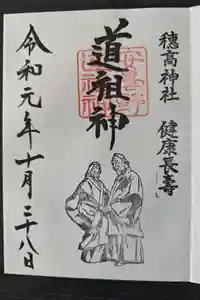 穂高神社 健康長寿
道祖神
令和元年十月二十八日